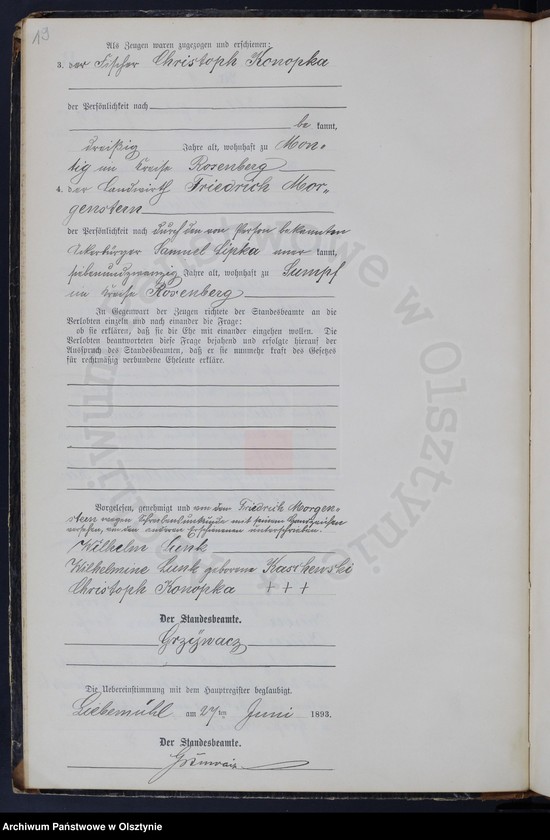 19
Als Zeugen waren zugezogen und erschienen:
3. der Fischer Christoph Konopka
der Persönlichkeit nach
be kannt,
dreißig Jahre alt, wohnhaft zu Mon-
tig im Kreise Rosenberg
4. der Landwirth Friedrich Mor-
genstern
der Persönlichkeit nach durch den von Person bekannten
Ackerbürger Samuel Lipka aner kannt,
siebenundzwanzig Jahre alt, wohnhaft zu Sumpf
im Kreise Rosenberg
In Gegenwart der Zeugen richtete der Standesbeamte an die
Verlobten einzeln und nach einander die Frage:
ob sie erklären, daß sie die Ehe mit einander eingehen wollen. Die
Verlobten beantworteten diese Frage bejahend und erfolgte hierauf der
Ausspruch des Standesbeamten, daß er sie nunmehr kraft des Gesetzes
für rechtmäßig verbundene Eheleute erkläre.
Vorgelesen, genehmigt und von dem Friedrich Morgen-
stern wegen Schreibensunkunde mit seinem Handzeichen
versehen, von den anderen Erschienenen unterschrieben.
Wilhelm Lenk
Wilhelmine Lenk geborene Kasikewski
Christoph Konopka + + +
Der Standesbeamte.
Grzÿwacz
Die Uebereinstimmung mit dem Hauptregister beglaubigt.
Liebemühl am 27ten Juni 1893.
Der Standesbeamte.
Archiwum Państwowe w Olsztynie